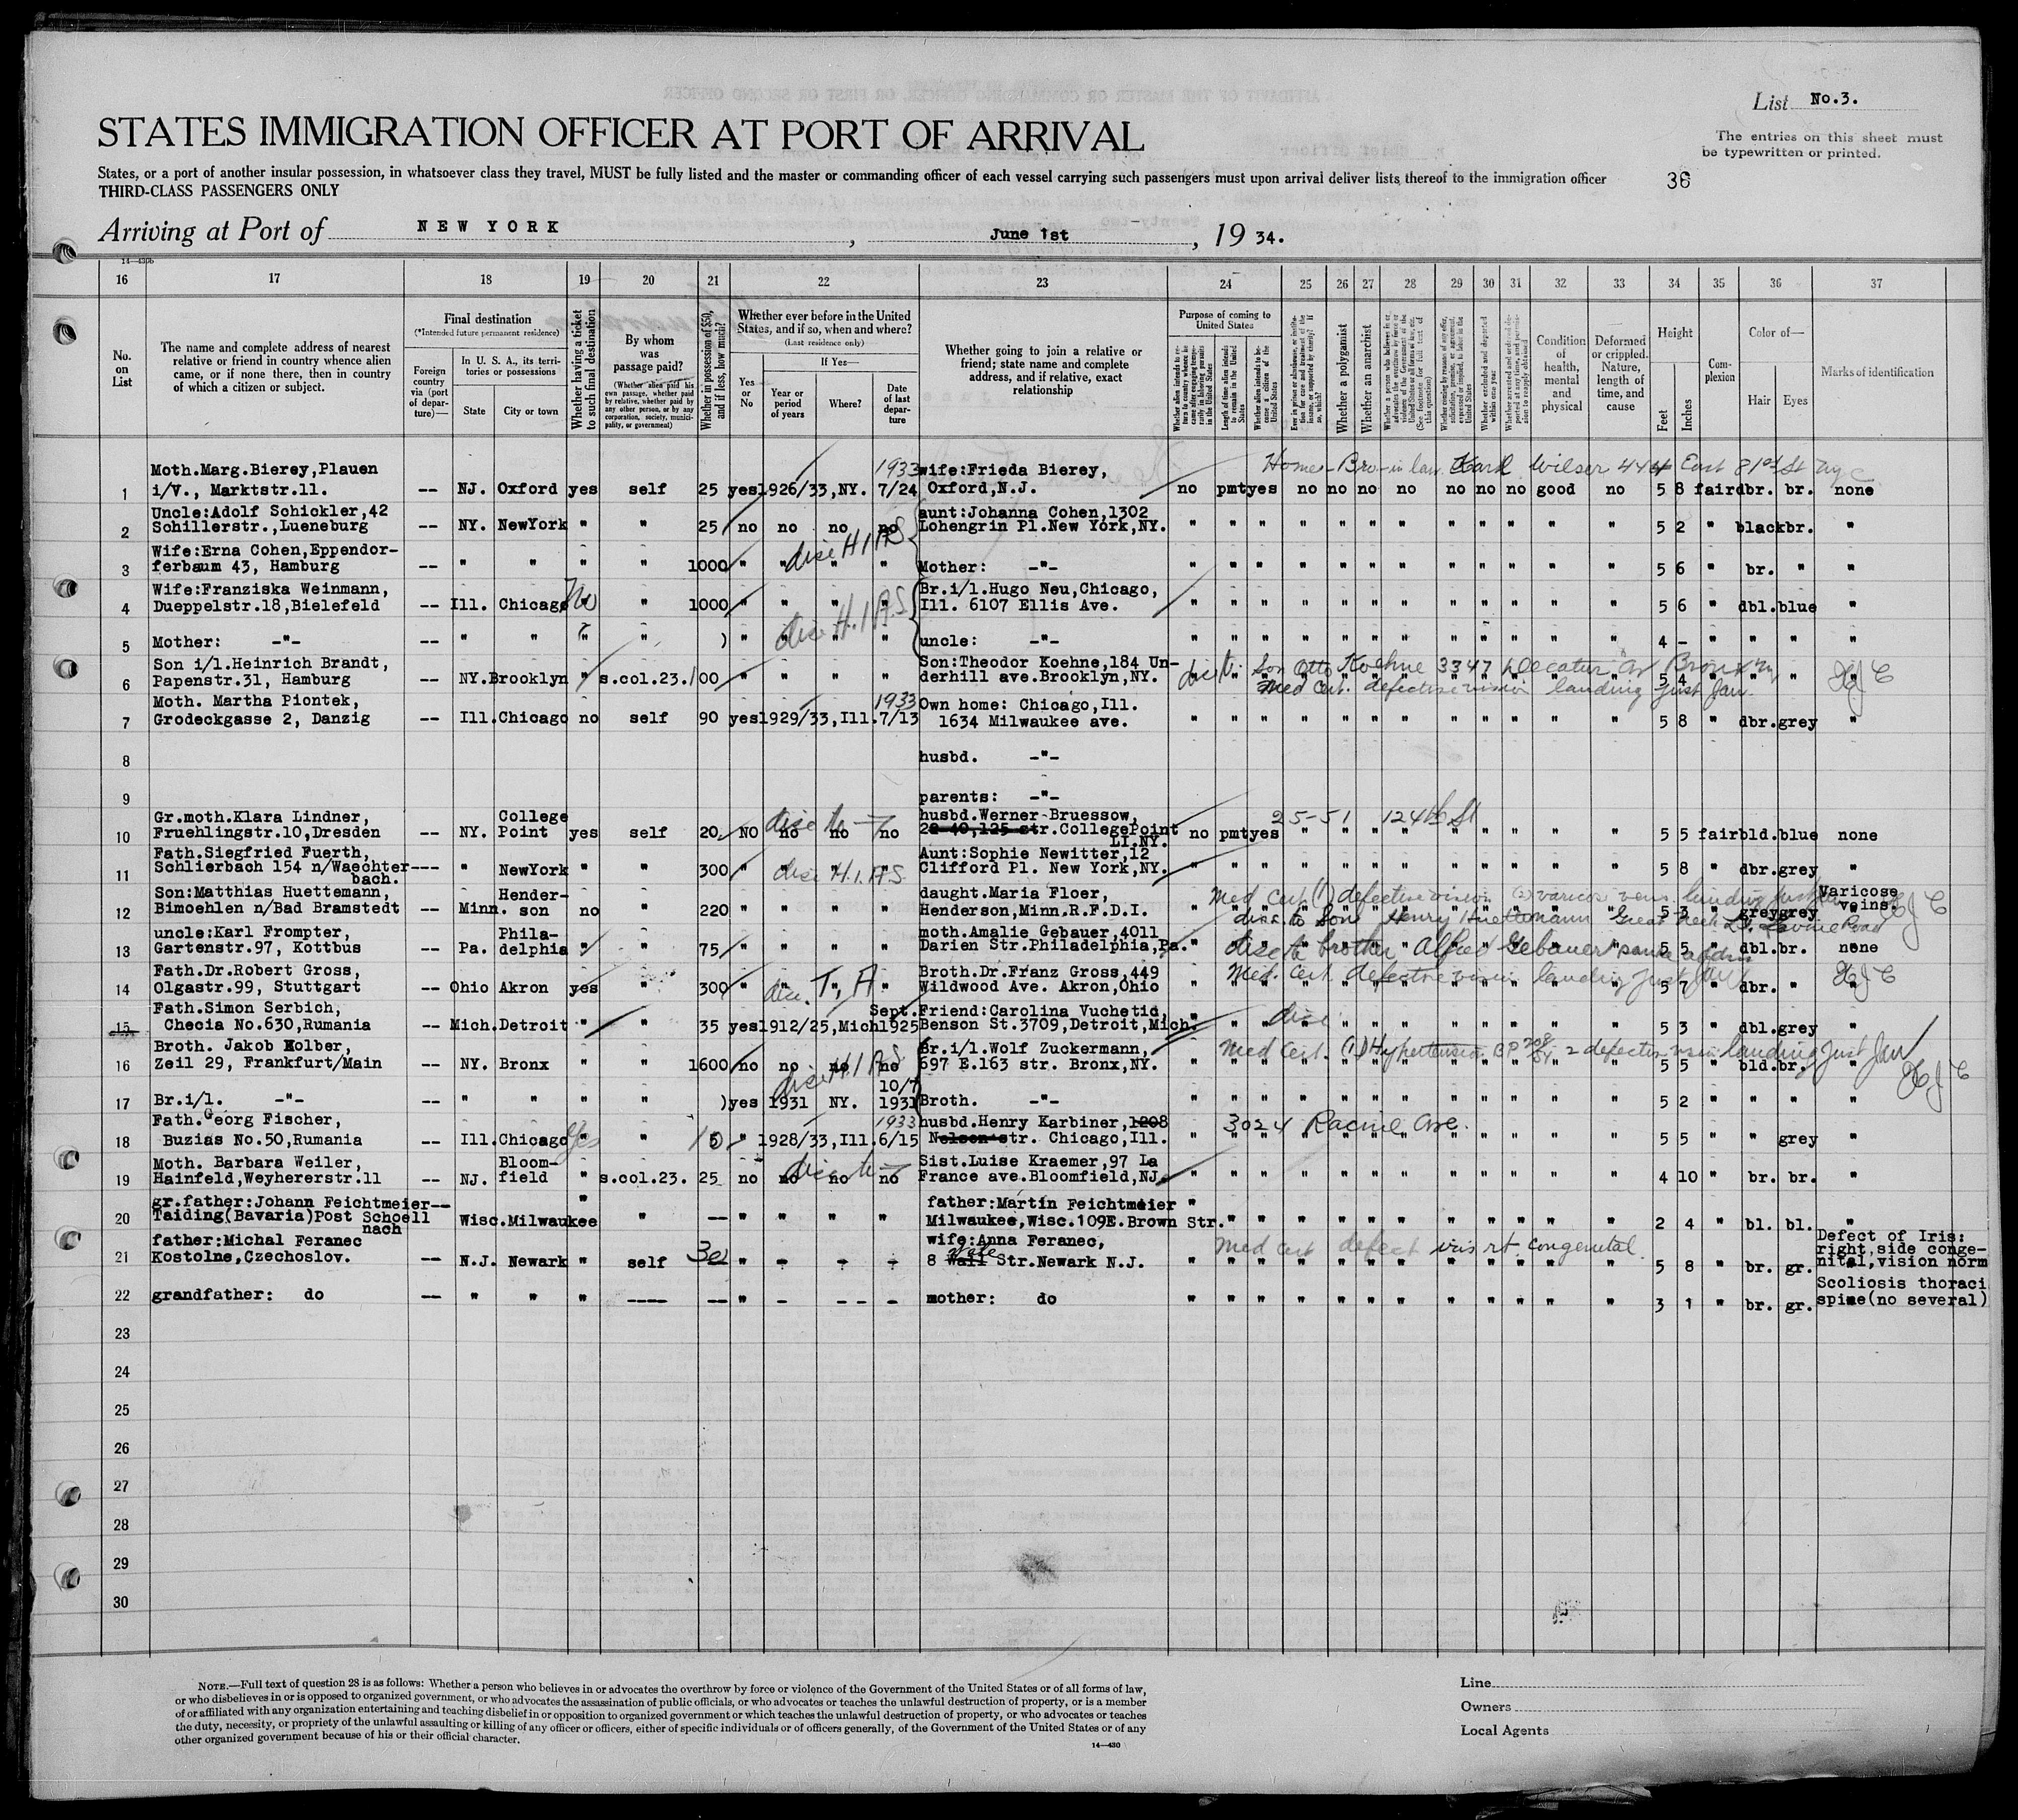 List No.3.
The entries on this sheet must
be typewritten or printed.
STATES IMMIGRATION OFFICER AT PORT OF ARRIVAL
States, or a port of another insular possession, in whatsoever class they travel, MUST be fully listed and the master or commanding officer of each vessel carrying such passengers must upon arrival deliver lists thereof to the immigration officer
THIRD-CLASS PASSENGERS ONLY
36
Arriving at Port of NEW YORK, June 1st, 19 34.
14—430b
16 17 18 19 20 21 22 23 24 25 26 27 28 29 30 31 32 33 34 35 36 37
No. on List
The name and complete address of nearest relative or friend in country whence alien came, or if none there, then in country of which a citizen or subject.
Final destination
(*Intended future permanent residence)
Foreign country via (port of departure)—
In U. S. A., its territories or possessions
State
City or town
Whether having a ticket to such final destination
By whom was passage paid?
(Whether alien paid his own passage, whether paid by relative, whether paid by any other person, or by any corporation, society, municipality, or government)
Whether in possession of $50, and if less, how much?
Whether ever before in the United States, and if so, when and where?
(Last residence only)
Yes or No
If Yes—
Year or period of years
Where?
Date of last departure
Whether going to join a relative or friend; state name and complete address, and if relative, exact relationship
Purpose of coming to United States
Whether alien intends to return to country whence he came after engaging temporarily in laboring pursuits in the United States
Length of time alien intends to remain in the United States
Whether alien intends to become a citizen of the United States
Ever in prison or almshouse, or institution for care and treatment of the insane, or supported by charity? If so, which?
Whether a polygamist
Whether an anarchist
Condition of health, mental and physical
Deformed or crippled. Nature, length of time, and cause
Height
Feet
Inches
Complexion
Color of—
Hair
Eyes
Marks of identification
Moth.Marg.Bierey,Plauen 1933 wife:Frieda Bierey, Home - Bro-in law Karl Wilser 444 East 81st St NYC
1 i/V., Marktstr.11. -- NJ. Oxford yes self 25 yes 1926/33,NY. 7/24 Oxford,N.J. no pmt yes no no no no no no no good no 5 8 fair dbr. br. none
Uncle:Adolf Schickler,42 aunt:Johanna Cohen,1302
2 Schillerstr.,Lueneburg -- NY. NewYork " " 25 no no no no Lohengrin Pl.New York,NY. " " " " " " " " " " " " 5 2 " black br. "
disc H.I.A.S
Wife:Erna Cohen,Eppendor-
3 ferbaum 43, Hamburg -- " " " " 1000 " " " " Mother: -"- " " " " " " " " " " " " 5 6 " br. " "
Wife:Franziska Weinmann, Br.i/l.Hugo Neu,Chicago,
4 Dueppelstr.18,Bielefeld -- Ill. Chicago no " 1000 " " " " Ill. 6107 Ellis Ave. " " " " " " " " " " " " 5 6 " dbl. blue "
disc H.I.A.S
5 Mother: -"- -- " " " " ) " " " " uncle: -"- " " " " " " " " " " " " 4 - " " " "
Son i/l.Heinrich Brandt, Son:Theodor Koehne,184 Un- disc to Son Otto Koehne 3347 Decatur av Bronx NY
6 Papenstr.31, Hamburg -- NY. Brooklyn " s.col.23. 100 " " " " derhill ave.Brooklyn,NY. " " " " " " " " " " " " 5 4 " " " "
Med Cert. defective vision landing just Jaw
Moth. Martha Piontek, 1933 Own home: Chicago,Ill.
7 Grodeckgasse 2, Danzig -- Ill. Chicago no self 90 yes 1929/33,Ill. 7/13 1634 Milwaukee ave. " " " " " " " " " " " " 5 8 " dbr. grey "
8 husbd. -"-
9 parents: -"-
Gr.moth.Klara Lindner, College husbd.Werner Bruessow, 25-51 124th St
10 Fruehlingstr.10,Dresden -- NY. Point yes self 20 NO no no no 22-40,125 str.CollegePoint LI.NY. no pmt yes " " " " " " " " " 5 5 fair bld. blue none
Fath.Siegfried Fuerth, Aunt:Sophie Newitter,12
11 Schlierbach 154 n/Waechter-bach. --- " NewYork " " 300 " " " " Clifford Pl. New York,NY. " " " " " " " " " " " " 5 8 " dbr. grey "
disc H.I.A.S
Son:Matthias Huettemann, Hender- daught.Maria Floer, Med Cert (1) defective vision (2) varicose veins landing just Varicose
12 Bimoehlen n/Bad Bramstedt -- Minn. son no " 220 " " " " Henderson,Minn.R.F.D.I. " " " " " " " " " " " " 5 3 " grey grey veins.
disc to Son Henry Huettemann Great Neck L.I. Road
uncle:Karl Frompter, Phila- moth.Amalie Gebauer,4011
13 Gartenstr.97, Kottbus -- Pa. delphia " " 75 " " " " Darien Str.Philadelphia,Pa. " " " " " " " " " " " " 5 5 " dbl. br. none
disc to brother Alfred Gebauer same address
Fath.Dr.Robert Gross, Broth.Dr.Franz Gross,449 Med. Cert. defective vision landing just Jaw
14 Olgastr.99, Stuttgart -- Ohio Akron yes " 300 " " " " Wildwood Ave. Akron,Ohio " " " " " " " " " " " " 5 7 " dbr. " "
disc. T, A
Fath.Simon Serbich, Sept. Friend:Carolina Vuchetid, disc
15 Checia No.630,Rumania -- Mich. Detroit " " 35 yes 1912/25,Mich 1925 Benson St.3709,Detroit,Mich. " " " " " " " " " " " " 5 3 " dbl. grey "
Broth. Jakob Kolber, Br.i/l.Wolf Zuckermann, Med Cert. (1) Hypertension BP 2 defective vision landing just Jaw
16 Zeil 29, Frankfurt/Main -- NY. Bronx " " 1600 no no no no 697 E.163 str. Bronx,NY. " " " " " " " " " " " " 5 5 " bld. br. "
disc H.I.A.S 10/7
17 Br.i/l. -"- -- " " " " ) yes 1931 NY. 1931 Broth. -"- " " " " " " " " " " " " 5 2 " " " "
Fath.Georg Fischer, 1933 husbd.Henry Karbiner,1208 3024 Racine Ave.
18 Buzias No.50,Rumania -- Ill. Chicago yes " 10 " 1928/33,Ill. 6/15 Nelson str. Chicago,Ill. " " " " " " " " " " " " 5 5 " " grey "
Moth. Barbara Weiler, Bloom- Sist.Luise Kraemer,97 La
19 Hainfeld,Weyhererstr.11 -- NJ. field " s.col.23. 25 no no no no France ave.Bloomfield,NJ. " " " " " " " " " " " " 4 10 " br. br. "
gr.father:Johann Feichtmeier-- " father:Martin Feichtmeier "
20 Taiding(Bavaria)Post Schoell nach Wisc. Milwaukee " -- " " " " Milwaukee,Wisc.109E.Brown Str. " " " " " " " " " " " 2 4 " bl. bl. "
father:Michal Feranec wife:Anna Feranec, Med cert defect iris rt. congenital Defect of Iris:
right,side conge-
21 Kostolne,Czechoslov. -- N.J. Newark " self 30 " - - - 8 Wall Str.Newark N.J. " " " " " " " " " " " " 5 8 " br. gr. nital,vision norm
Scoliosis thoraci
22 grandfather: do -- " " " ---- -- " - - - - mother: do " " " " " " " " " " " " 3 1 " br. gr. spine(no several)
23
24
25
26
27
28
29
30
NOTE.—Full text of question 28 is as follows: Whether a person who believes in or advocates the overthrow by force or violence of the Government of the United States or of all forms of law,
or who disbelieves in or is opposed to organized government, or who advocates the assassination of public officials, or who advocates or teaches the unlawful destruction of property, or is a member
of or affiliated with any organization entertaining and teaching disbelief in or opposition to organized government or which teaches the unlawful destruction of property, or who advocates or teaches
the duty, necessity, or propriety of the unlawful assaulting or killing of any officer or officers, either of specific individuals or of officers generally, of the Government of the United States or of any
other organized government because of his or their official character.
14—430
Line
Owners
Local Agents